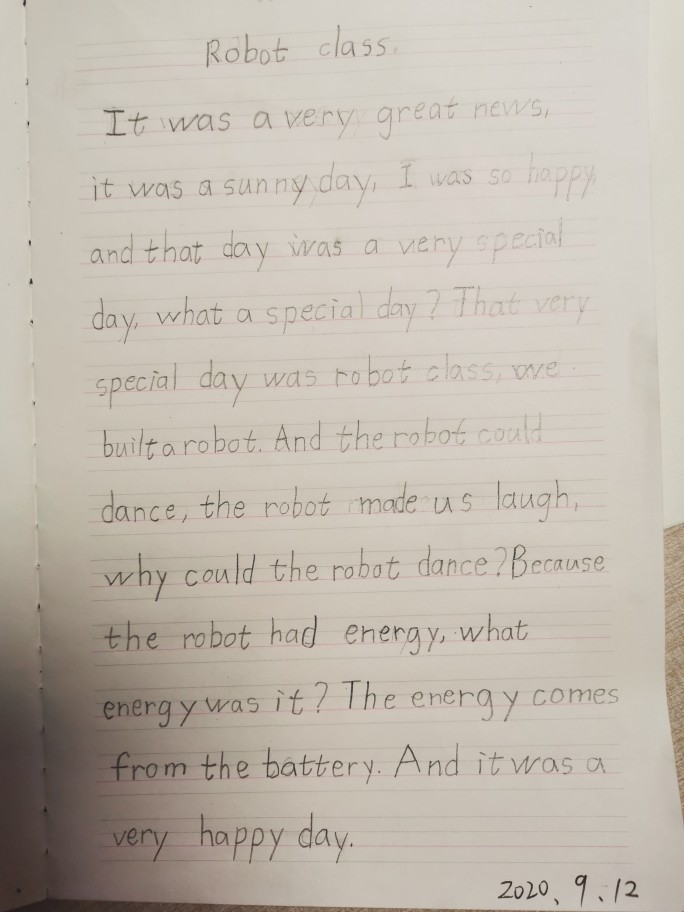 Robot class.
It was a very great news,
it was a sunny day, I was so happy,
and that day was a very special
day, what a special day? That very
special day was robot class, we
built a robot. And the robot could
dance, the robot made us laugh,
why could the robot dance? Because
the robot had energy, what
energy was it? The energy comes
from the battery. And it was a
very happy day.
2020、9、12